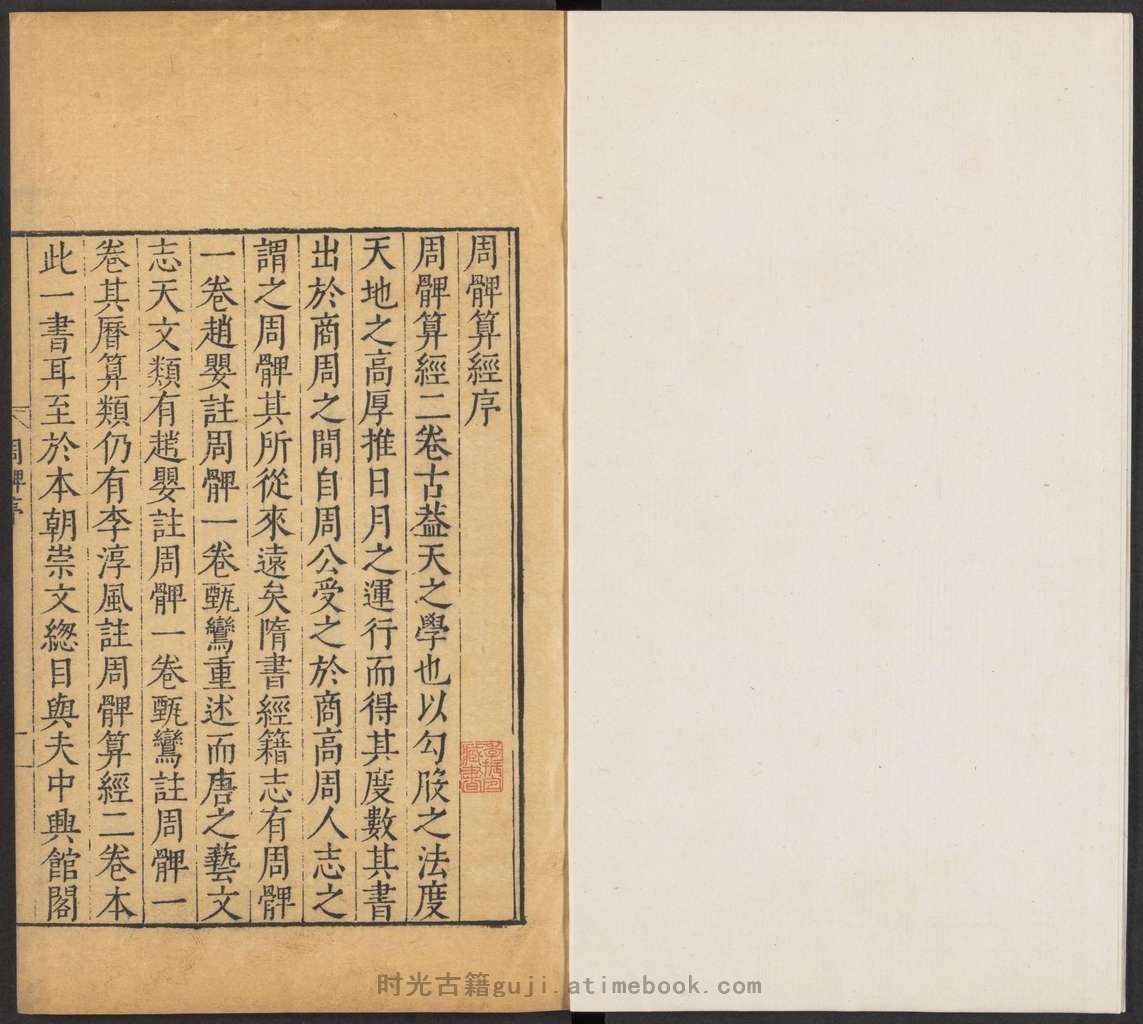 周髀算經序
周髀算經二卷古葢天之學也以勾股之法度
天地之高厚推日月之運行而得其度數其書
出於商周之間自周公受之於商高周人志之
謂之周髀其所從來遠矣隋書經籍志有周髀
一卷趙嬰註周髀一卷甄鸞重述而唐之藝文
志天文類有趙嬰註周髀一卷甄鸞註周髀一
卷其曆算類仍有李淳風註周髀算經二卷本
此一書耳至於本朝崇文總目與夫中興館閣
周髀序
时光古籍guji.atimebook.com